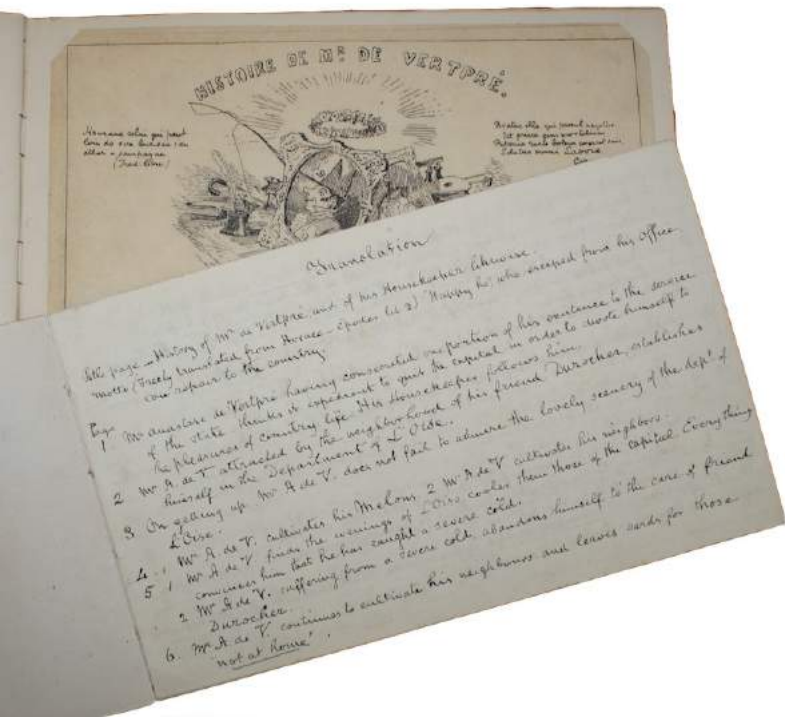 HISTOIRE DE Mr DE VERTPRÉ.
Heureux celui qui peut
loin de son bureau s'en
aller
(Trad. libre)
Beatus ille qui procul negotiis
Ut prisca gens mortalium
Translation
Title page – History of Mr de Vertpré and of his Housekeeper likewise.
Motto (Freely translated from Horace – Epodes lib 2) "Happy he who escaped from his office
can repair to the country.
Page
1 Mr Anastase de Vertpré having consecrated a portion of his existence to the service
of the state thinks it expedient to quit the capital in order to devote himself to
the pleasures of country life. His Housekeeper follows him.
2 Mr A. de V. attracted by the neighborhood of his friend Durocher, establishes
himself in the Department of L'Oise.
3 On getting up Mr A de V. does not fail to admire the lovely scenery of the dept. of
L'Oise.
4. 1 Mr A. de V. cultivates his Melons. 2 Mr A de V cultivates his neighbors.
5 1 Mr A de V finds the evenings of L'Oise cooler than those of the capital. Everything
convinces him that he has caught a severe cold.
2 Mr A de V. suffering from a severe cold abandons himself to the care of friend
Durocher.
6. Mr A. de V. continues to cultivate his neighbours and leaves cards for those
"not at home".